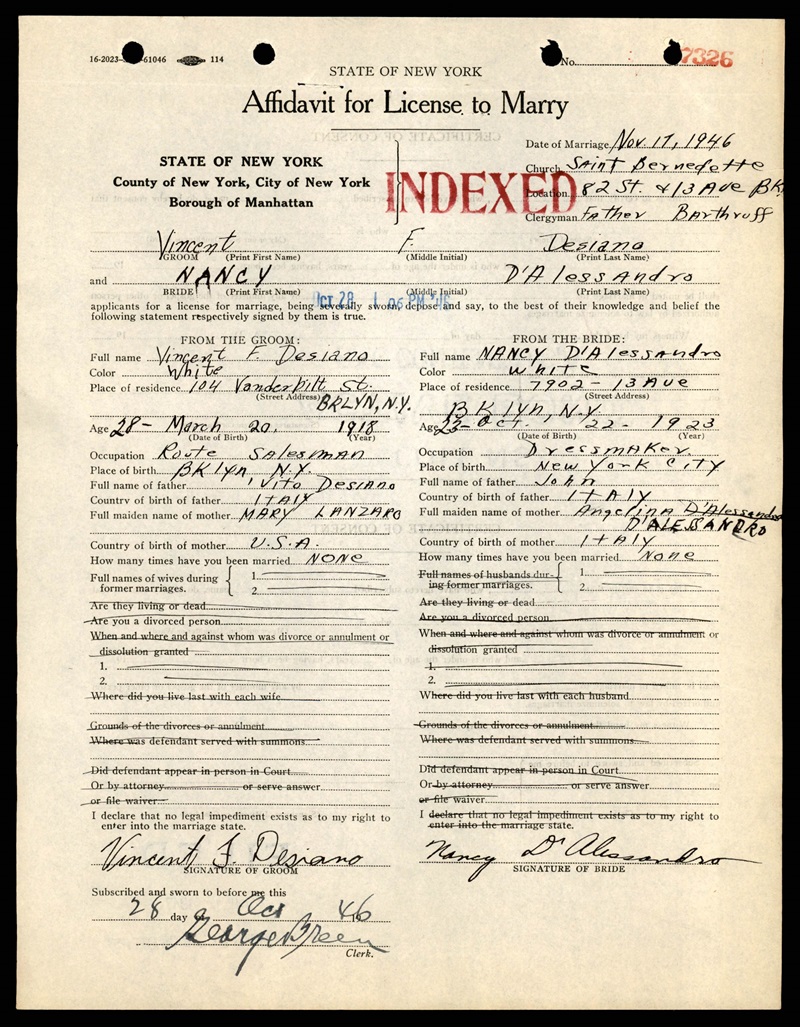 114
No. 7326
STATE OF NEW YORK
Affidavit for License to Marry
Date of Marriage Nov. 17, 1946
STATE OF NEW YORK
County of New York, City of New York
Borough of Manhattan
INDEXED
Church Saint Bernedette
Location 82 St. & 13 Ave BK
Clergyman Father Barthruff
Vincent F. Desiano
GROOM (Print First Name) (Middle Initial) (Print Last Name)
and NANCY D'Alessandro
BRIDE (Print First Name) (Middle Initial) (Print Last Name)
Oct 28 1 06 PM '46
applicants for a license for marriage, being severally sworn, depose and say, to the best of their knowledge and belief the
following statement respectively signed by them is true.
FROM THE GROOM:
Full name Vincent F. Desiano
Color White
Place of residence 104 Vanderbilt St.
(Street Address)
BRLYN, N.Y.
Age 28 - March 20, 1918
(Date of Birth) (Year)
Occupation Route Salesman
Place of birth BKlyn N.Y.
Full name of father Vito Desiano
Country of birth of father ITALY
Full maiden name of mother MARY LANZARO
Country of birth of mother U.S.A.
How many times have you been married NONE
Full names of wives during
former marriages. { 1.
2.
Are they living or dead
Are you a divorced person
When and where and against whom was divorce or annulment or
dissolution granted
1.
2.
Where did you live last with each wife
Grounds of the divorces or annulment
Where was defendant served with summons
Did defendant appear in person in Court
Or by attorney or serve answer
or file waiver
I declare that no legal impediment exists as to my right to
enter into the marriage state.
Vincent F. Desiano
SIGNATURE OF GROOM
Subscribed and sworn to before me this
28 day of Oct 1946
George Breen
Clerk.
FROM THE BRIDE:
Full name NANCY D'Alessandro
Color White
Place of residence 7902 - 13 Ave
(Street Address)
BKlyn, N.Y.
Age 23 - Oct. 22 - 1923
(Date of Birth) (Year)
Occupation Dressmaker
Place of birth New York City
Full name of father John
Country of birth of father ITALY
Full maiden name of mother Angelina D'Alessandro
D'ALESSANDRO
Country of birth of mother ITALY
How many times have you been married None
Full names of husbands dur-
ing former marriages. { 1.
2.
Are they living or dead
Are you a divorced person
When and where and against whom was divorce or annulment or
dissolution granted
1.
2.
Where did you live last with each husband
Grounds of the divorces or annulment
Where was defendant served with summons
Did defendant appear in person in Court
Or by attorney or serve answer
or file waiver
I declare that no legal impediment exists as to my right to
enter into the marriage state.
Nancy D'Alessandro
SIGNATURE OF BRIDE